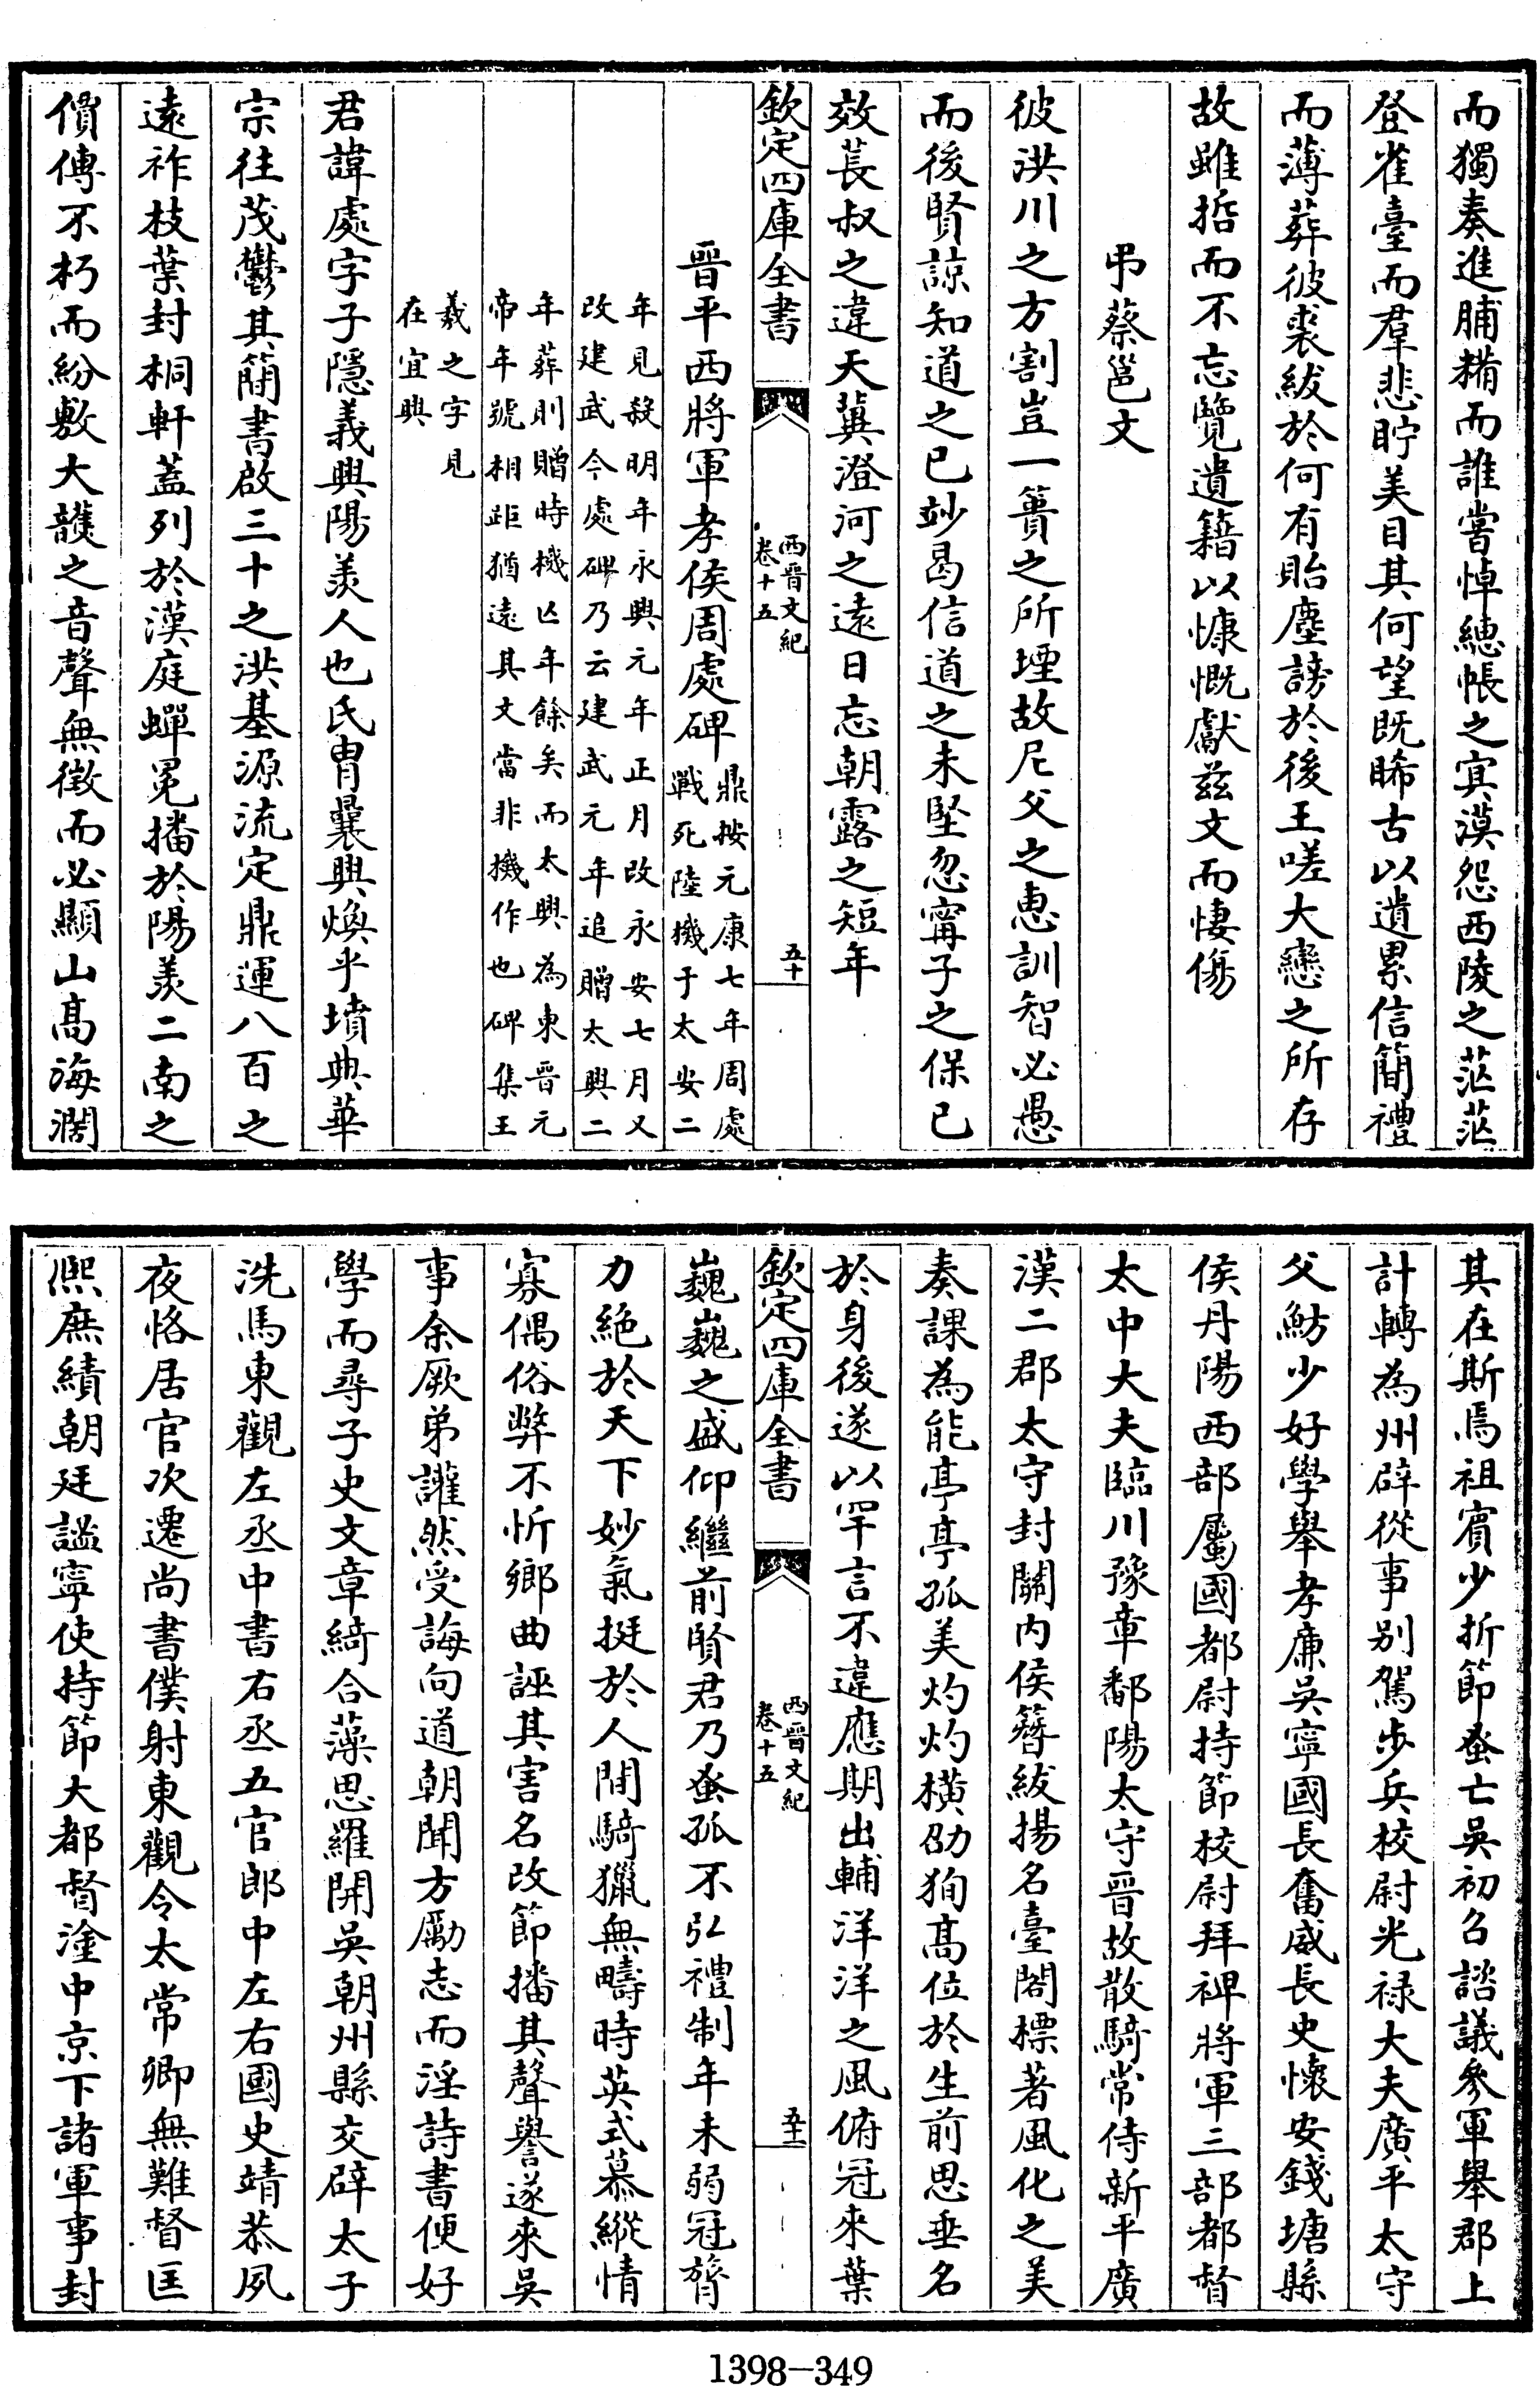 而獨奏進脯糒而誰嘗悼繐帳之㝠漠怨西陵之茫茫
登雀臺而羣悲眝美目其何望既睎古以遺累信簡禮
而薄葬彼裘紱於何有貽塵謗於後王嗟大戀之所存
故雖哲而不忘覽遺籍以慷慨獻兹文而悽傷
弔蔡邕文
彼洪川之方割豈一簣之所堙故尼父之惠訓智必愚
而後賢諒知道之已妙曷信道之未堅忽甯子之保已
效萇叔之違天冀澄河之遠日忘朝露之短年
欽定四庫全書
西晉文紀
卷十五
五十
晉平西將軍孝侯周處碑
鼎按元康七年周處
戰死陸機于太安二
年見殺明年永興元年正月改永安七月又
改建武今處碑乃云建武元年追贈太興二
年葬則贈時機亡年餘矣而太興為東晉元
帝年號相距猶遠其文當非機作也碑集王
羲之字見
在宜興
君諱處字子隱義興陽羡人也氏胄曩興煥乎墳典華
宗往茂鬱其簡書啟三十之洪基源流定鼎運八百之
遠祚枝葉封桐軒蓋列於漢庭蟬冕播於陽羡二南之
價傳不朽而紛敷大䕶之音聲無徵而必顯山髙海濶
其在斯焉祖賓少折節蚤亡吳初召諮議參軍舉郡上
計轉為州辟從事别駕步兵校尉光禄大夫廣平太守
父魴少好學舉孝廉吳寧國長奮威長史懷安錢塘縣
侯丹陽西部屬國都尉持節校尉拜裨將軍三部都督
太中大夫臨川豫章鄱陽太守晉故散騎常侍新平廣
漢二郡太守封關内侯簪紱揚名臺閣標著風化之美
奏課為能亭亭孤美灼灼横劭狥髙位於生前思垂名
於身後遂以罕言不違應期出輔洋洋之風俯冠來葉
欽定四庫全書
西晉文紀
卷十五
五十一
巍巍之盛仰繼前賢君乃蚤孤不弘禮制年未弱冠膂
力絶於天下妙氣挺於人間騎獵無疇時英式慕縱情
寡偶俗弊不忻鄉曲誣其害名改節播其聲譽遂來吳
事余厥弟讙然受誨向道朝聞方勵志而淫詩書便好
學而尋子史文章綺合藻思羅開吳朝州縣交辟太子
洗馬東觀左丞中書右丞五官郎中左右國史靖恭夙
夜恪居官次遷尚書僕射東觀令太常卿無難督匡
熈庶績朝廷謐寧使持節大都督塗中京下諸軍事封
1398-349